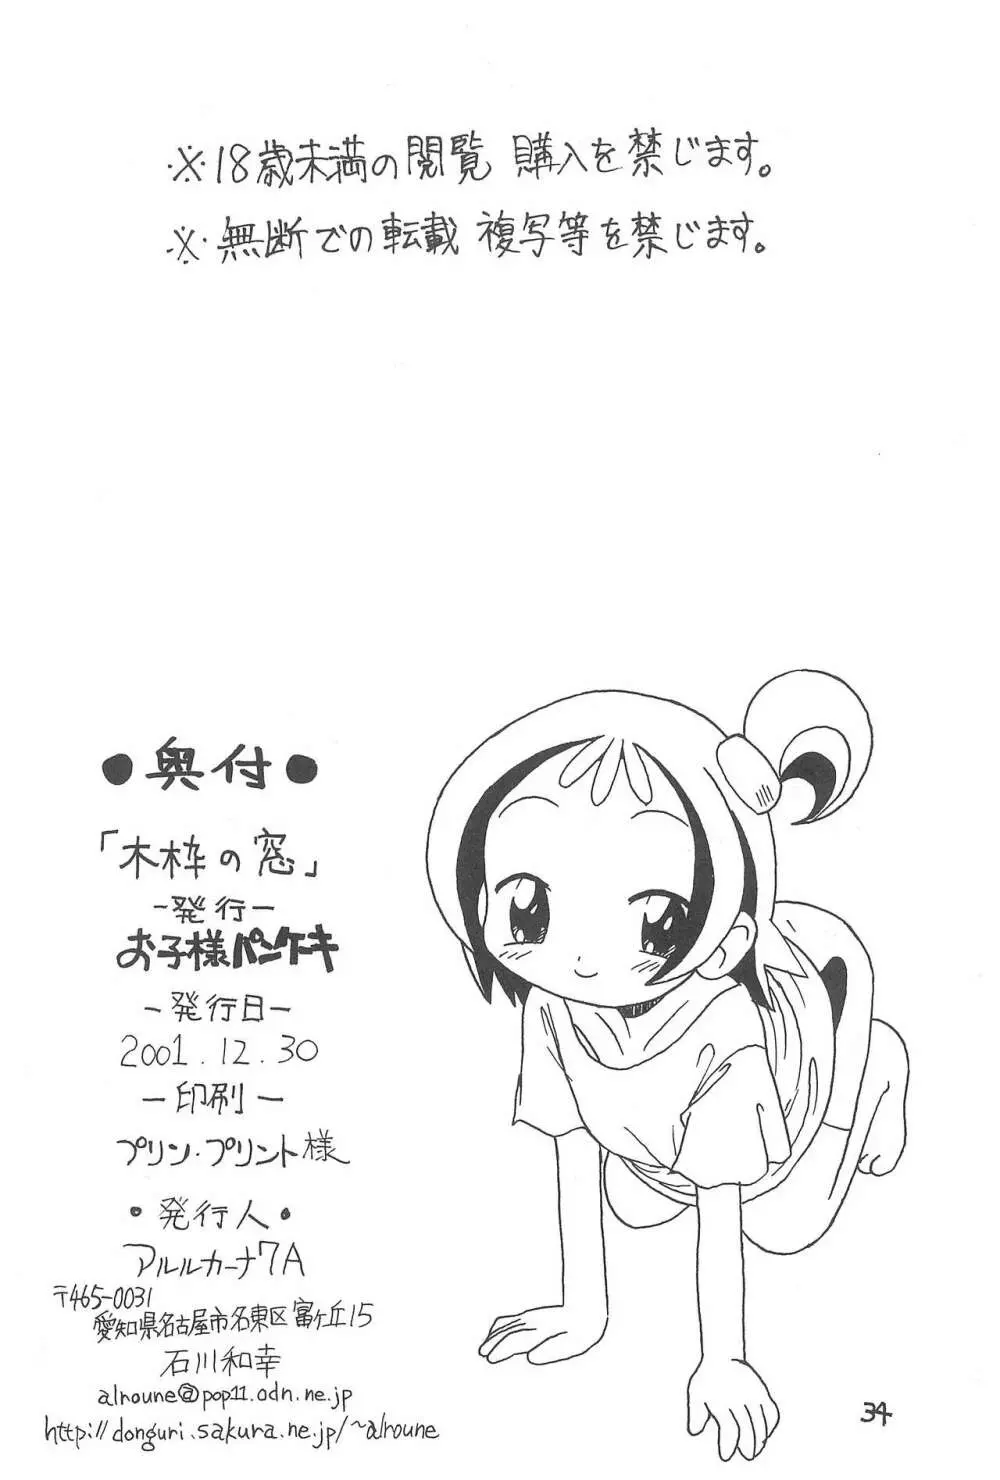 ※18歳未満の閲覧 購入を禁じます。
※無断での転載 複写等を禁じます。
●奥付●
「木枠の窓」
－発行－
お子様パンケーキ
－発行日－
2001.12.30
－印刷－
プリン・プリント様
・発行人・
アルルカーナ7A
〒465-0031
愛知県名古屋市名東区富ヶ丘15
石川和幸
alroune@pop11.odn.ne.jp
http://donguri.sakura.ne.jp/~alroune
34